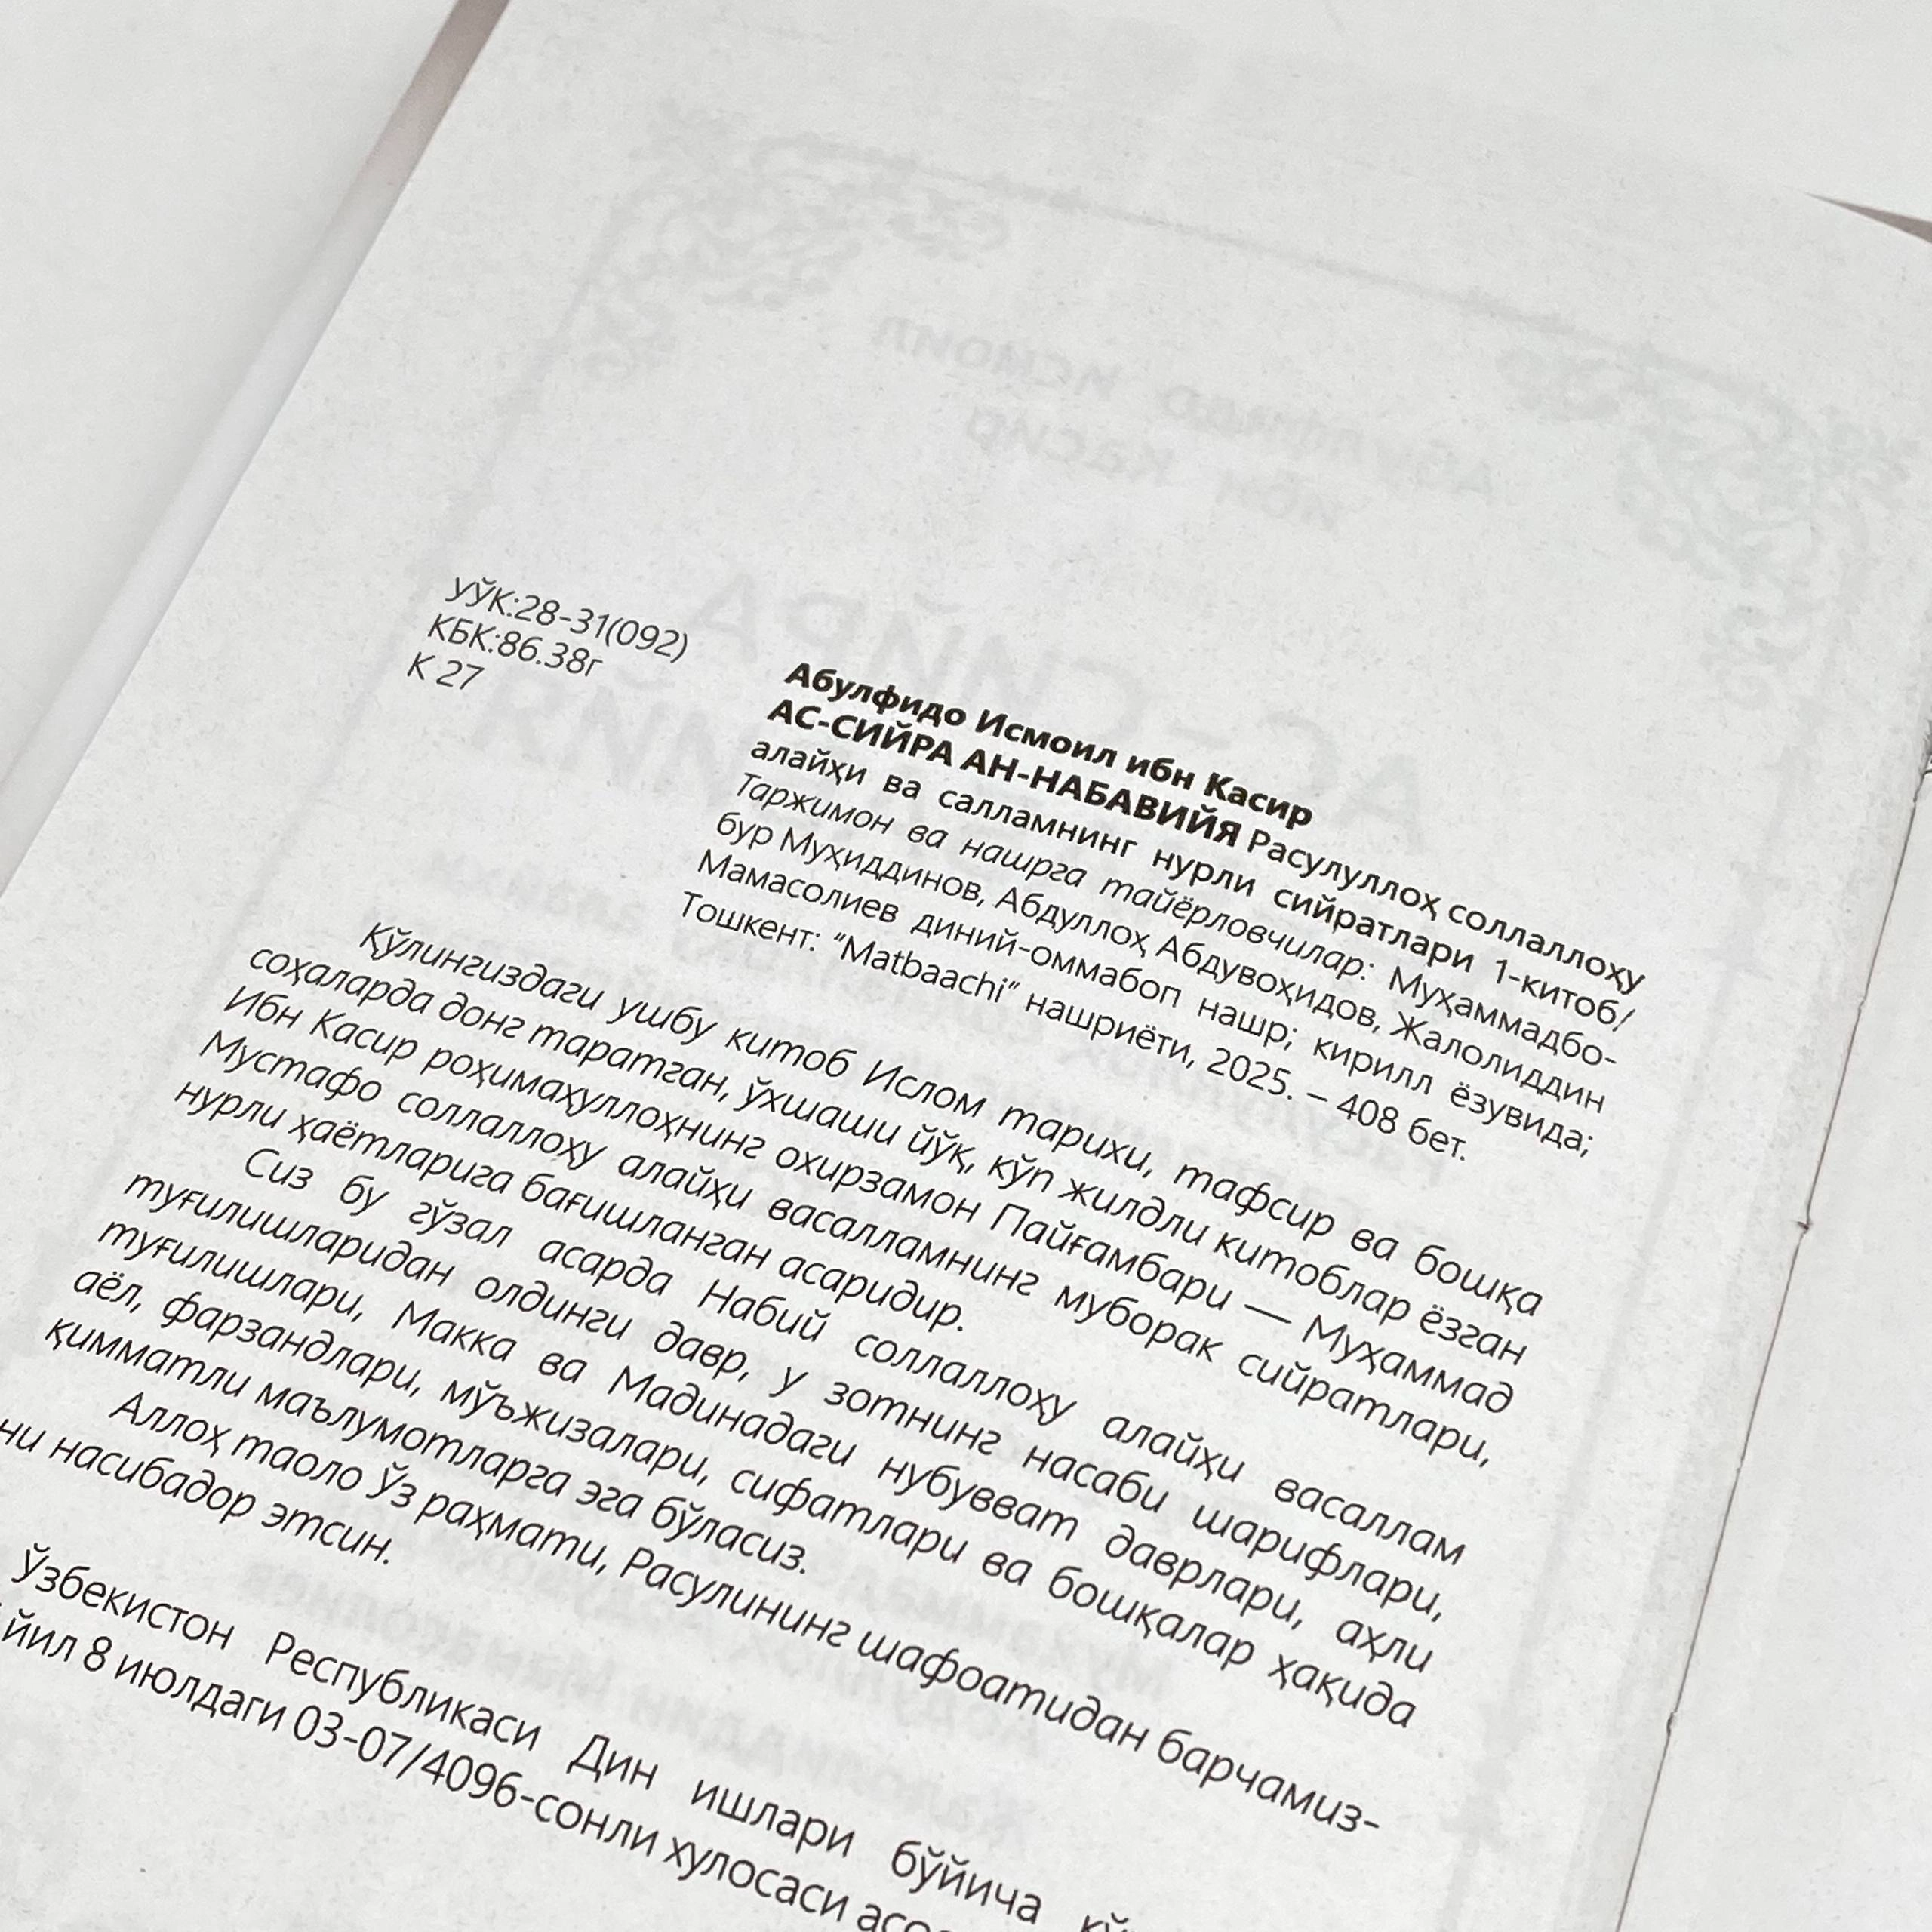 УЎК:28-31(092)
КБК:86.38г
К 27
Абулфидо Исмоил ибн Касир
АС-СИЙРА АН-НАБАВИЙЯ Расулуллоҳ соллаллоҳу
алайҳи ва салламнинг нурли сийратлари 1-китоб/
Таржимон ва нашрга тайёрловчилар: Муҳаммадбо-
бур Муҳиддинов, Абдуллоҳ Абдувоҳидов, Жалолиддин
Мамасолиев диний-оммабоп нашр; кирилл ёзувида;
Тошкент: “Matbaachi” нашриёти, 2025. – 408 бет.
Қўлингиздаги ушбу китоб Ислом тарихи, тафсир ва бошқа
соҳаларда донг таратган, ўхшаши йўқ, кўп жилдли китоблар ёзган
Ибн Касир роҳимаҳуллоҳнинг охирзамон Пайғамбари — Муҳаммад
Мустафо соллаллоҳу алайҳи васалламнинг муборак сийратлари,
нурли ҳаётларига бағишланган асаридир.
Сиз бу гўзал асарда Набий соллаллоҳу алайҳи васаллам
туғилишларидан олдинги давр, у зотнинг насаби шарифлари,
туғилишлари, Макка ва Мадинадаги нубувват даврлари, аҳли
аёл, фарзандлари, мўъжизалари, сифатлари ва бошқалар ҳақида
қимматли маълумотларга эга бўласиз.
Аллоҳ таоло Ўз раҳмати, Расулининг шафоатидан барчамиз-
ни насибадор этсин.
Ўзбекистон Республикаси Дин ишлари бўйича
йил 8 июлдаги 03-07/4096-сонли хулосаси